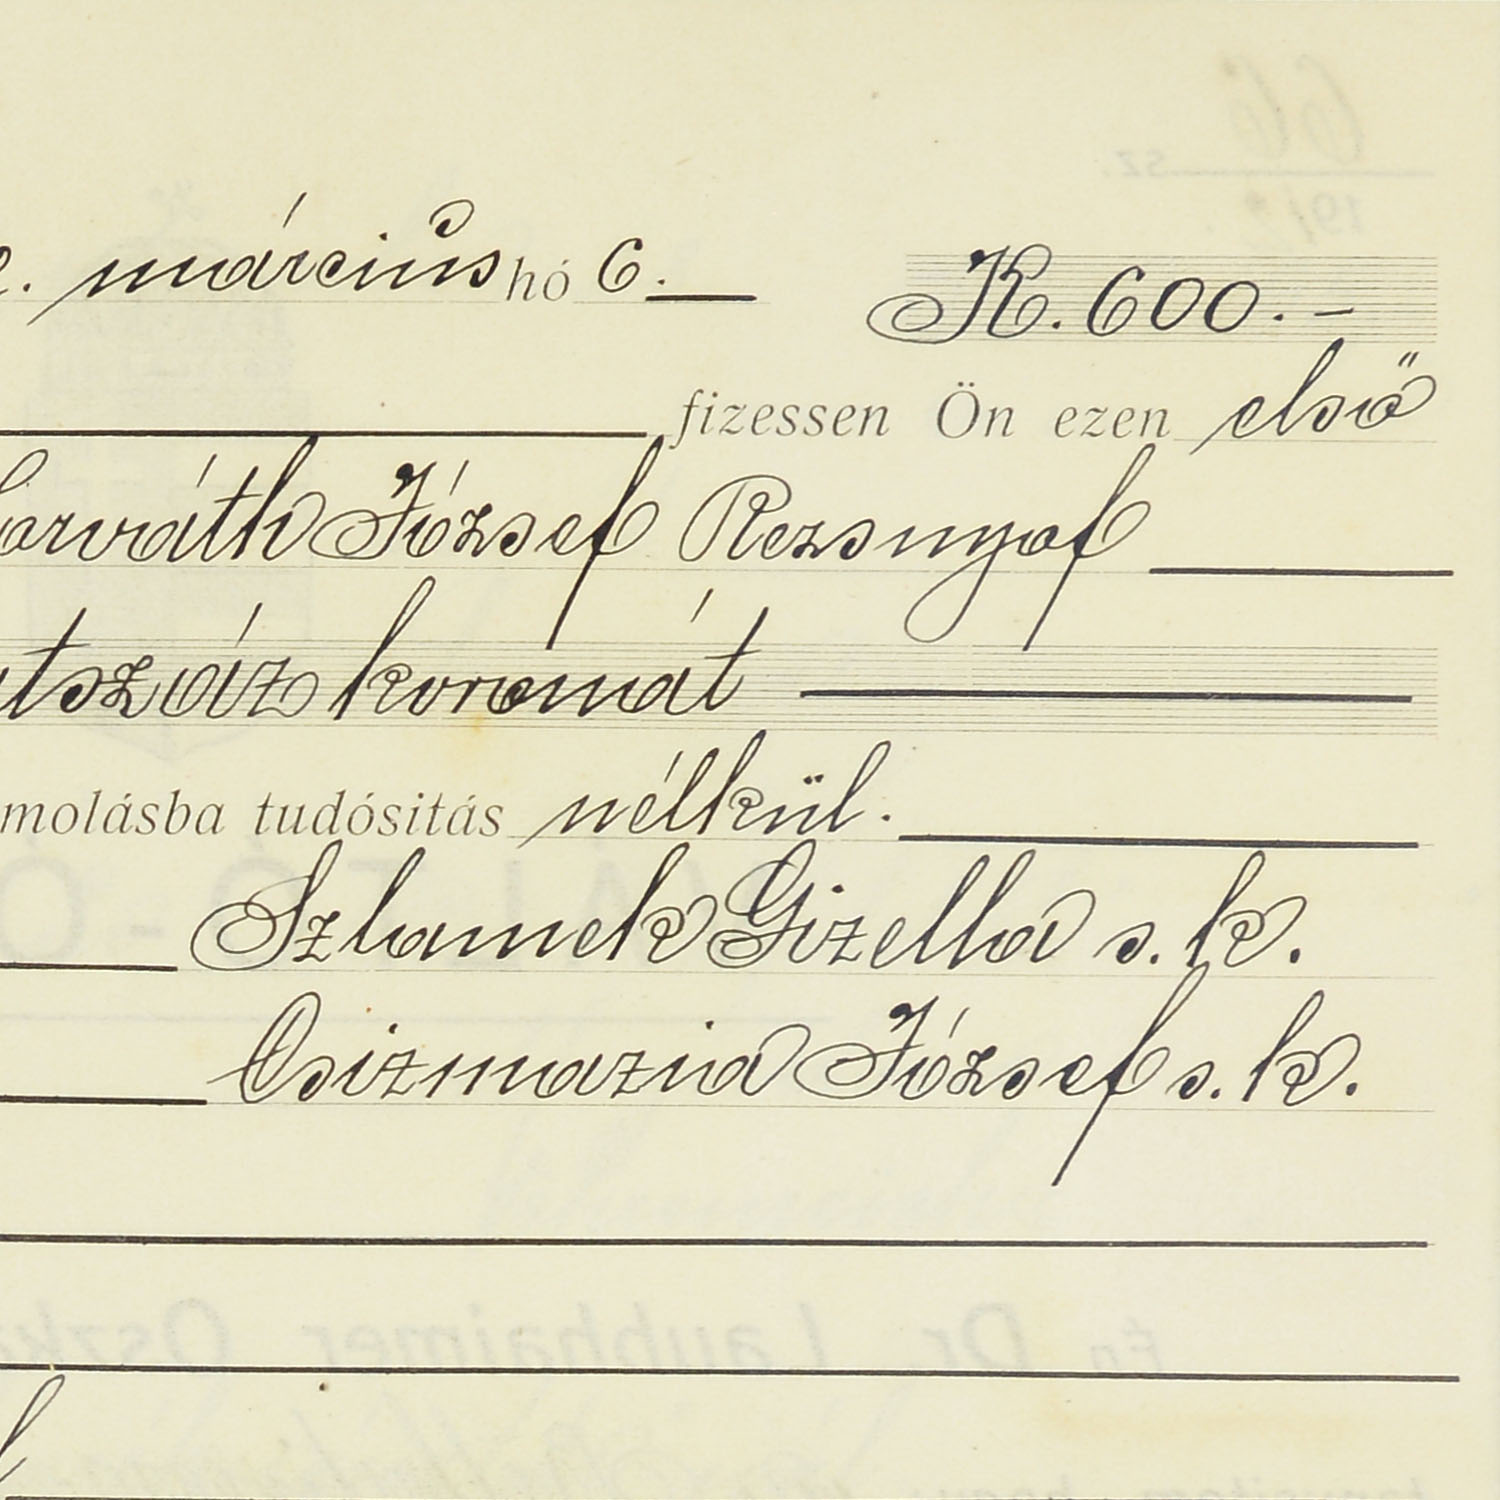 e. március hó 6. K. 600.-
fizessen Ön ezen első
Horváth József Rezsnyaf
atszáz koronát
molásba tudósitás nélkül.
Szlamek Gizella s. k.
Csizmazia József s. k.